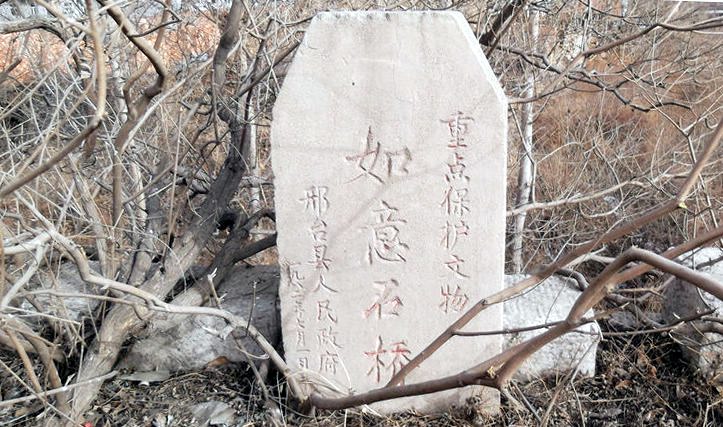 重点保护文物
如意石桥
邢台县人民政府